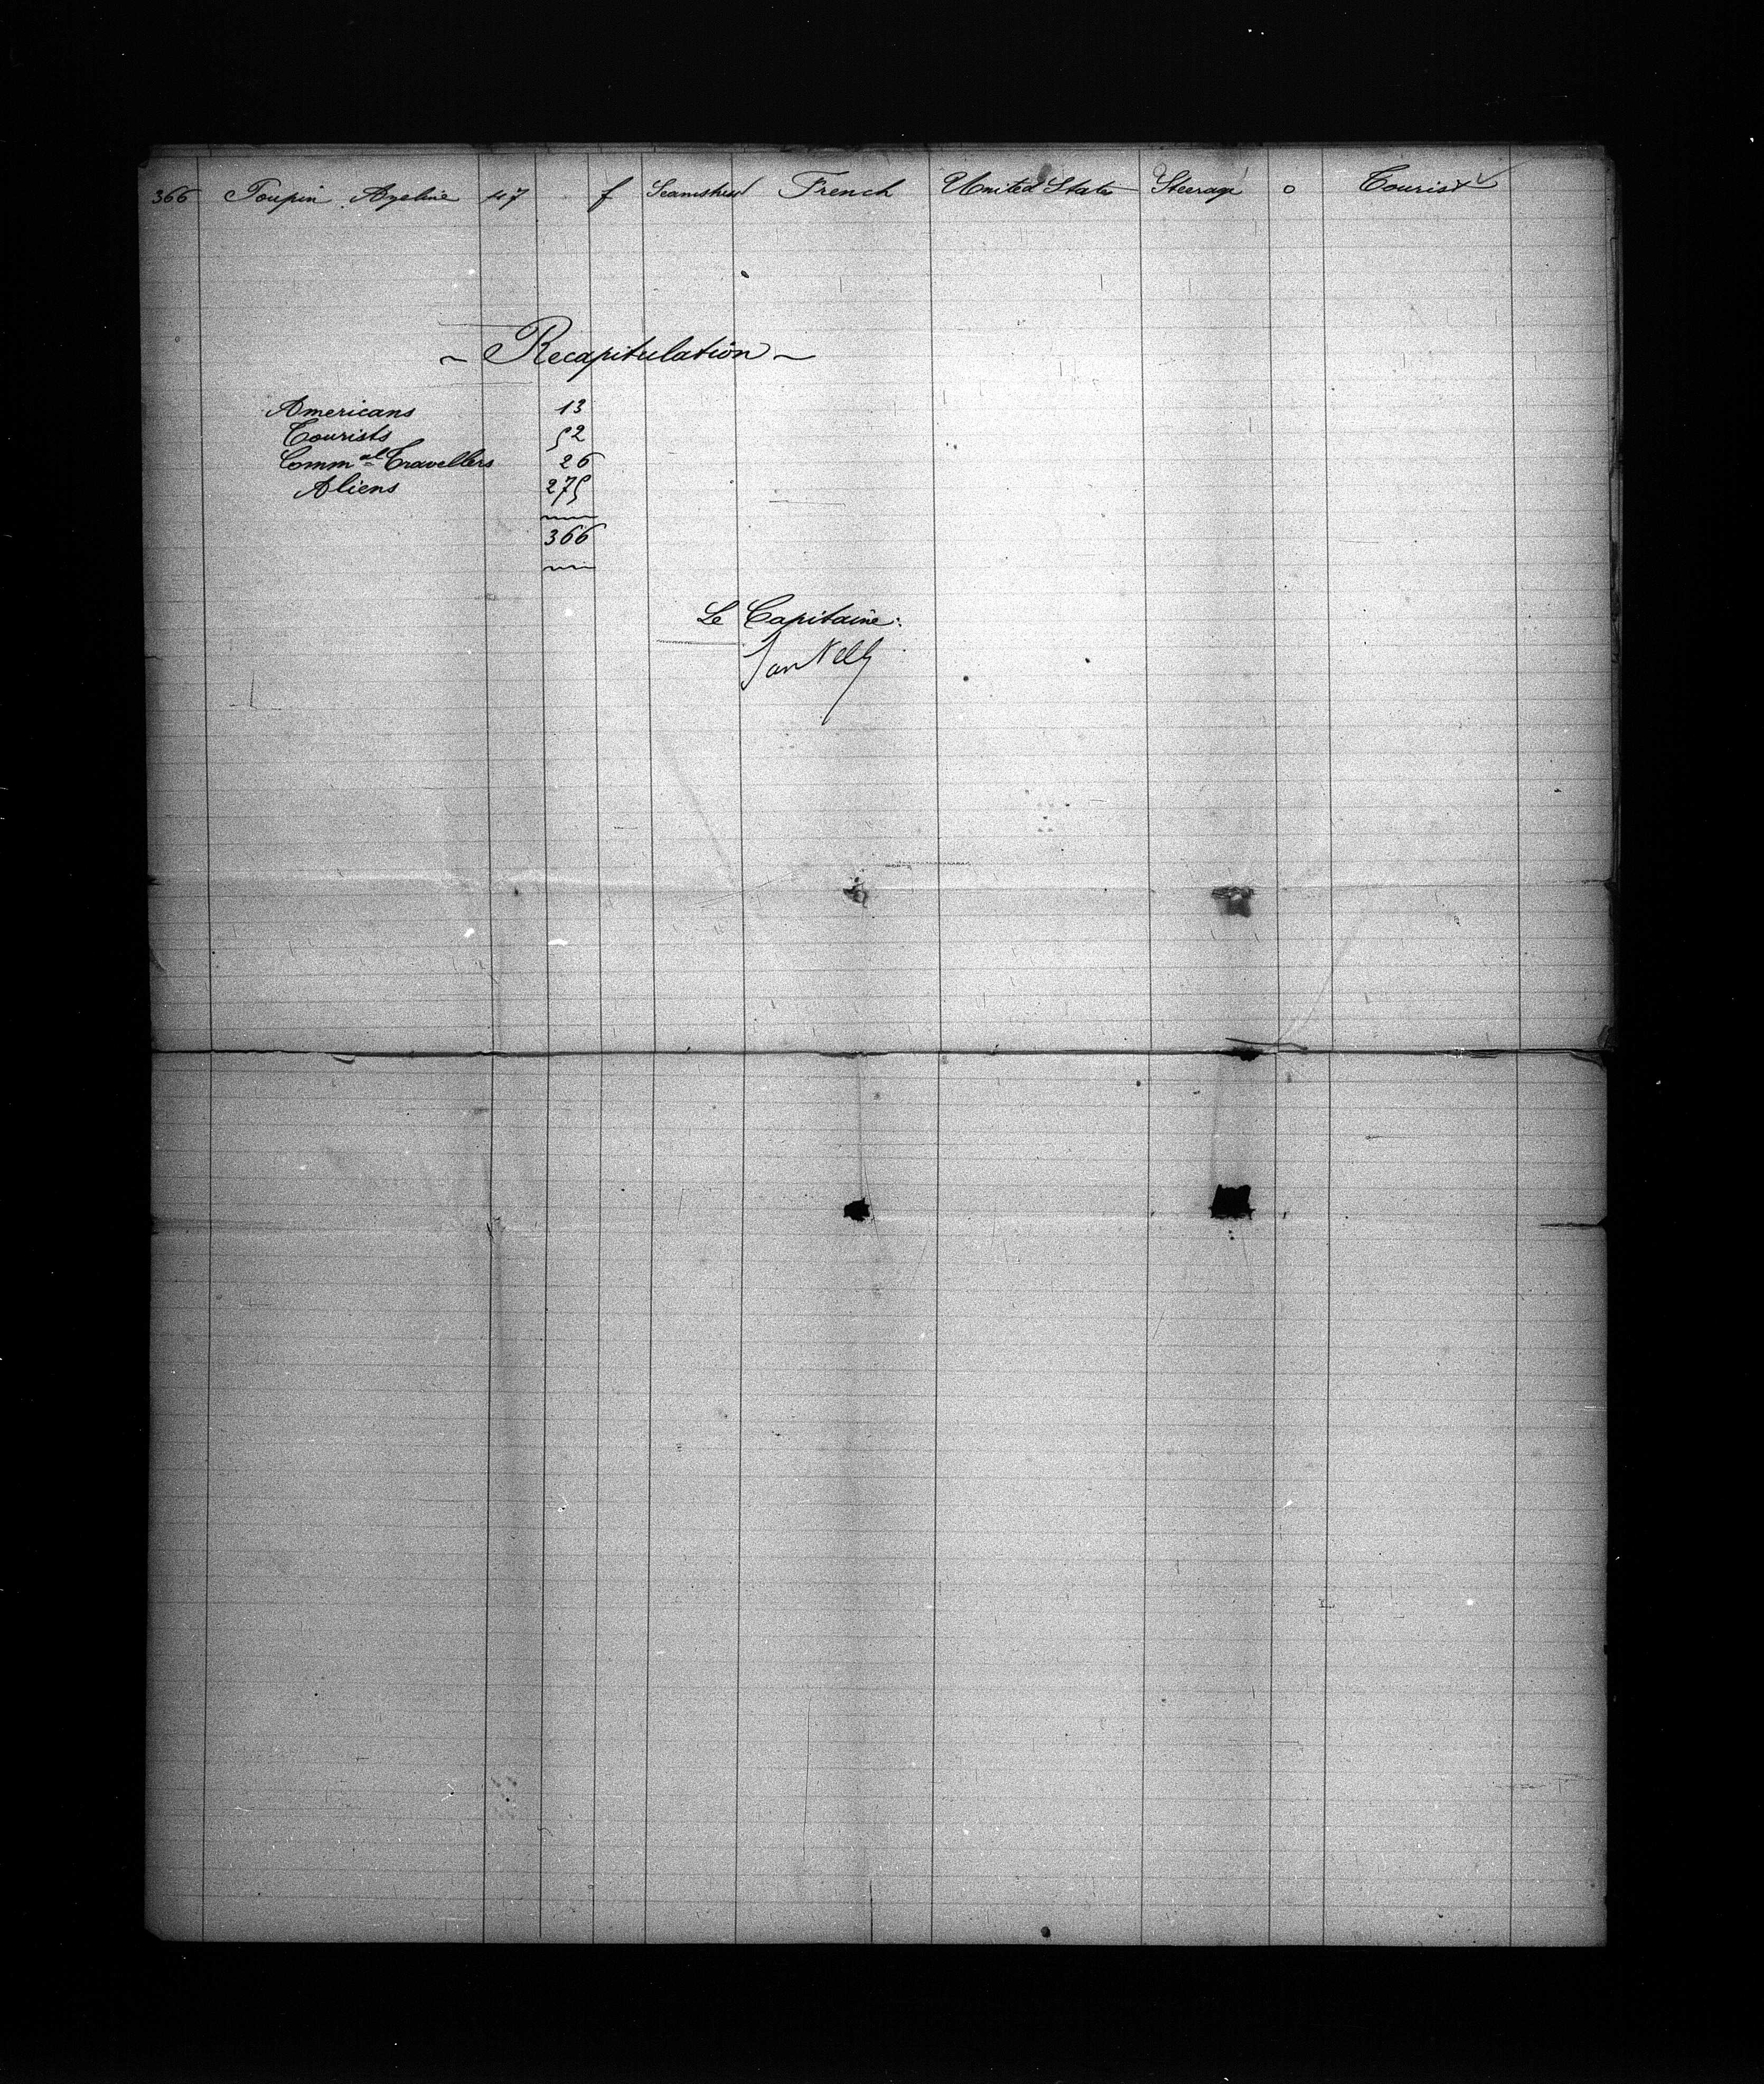 366 Toupin Azeline 47 f Seamstress French United States Steerage 0 Tourist
~ Recapitulation ~
Americans 13
Tourists 52
Comm.al Travellers 26
Aliens 275
366
Le Capitaine:
Santelly